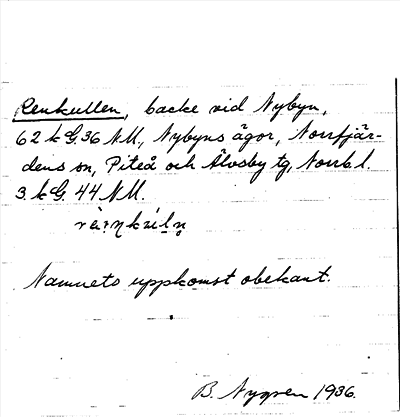 Renkullen, backe vid Nybyn,
62 k G. 36 NM., Nybyns ägor, Norrfjär-
dens sn, Piteå och Älvsby tg, Norrb. l.
3. k G. 44 NM.
Namnets uppkomst obekant.
B. Nygren 1936.